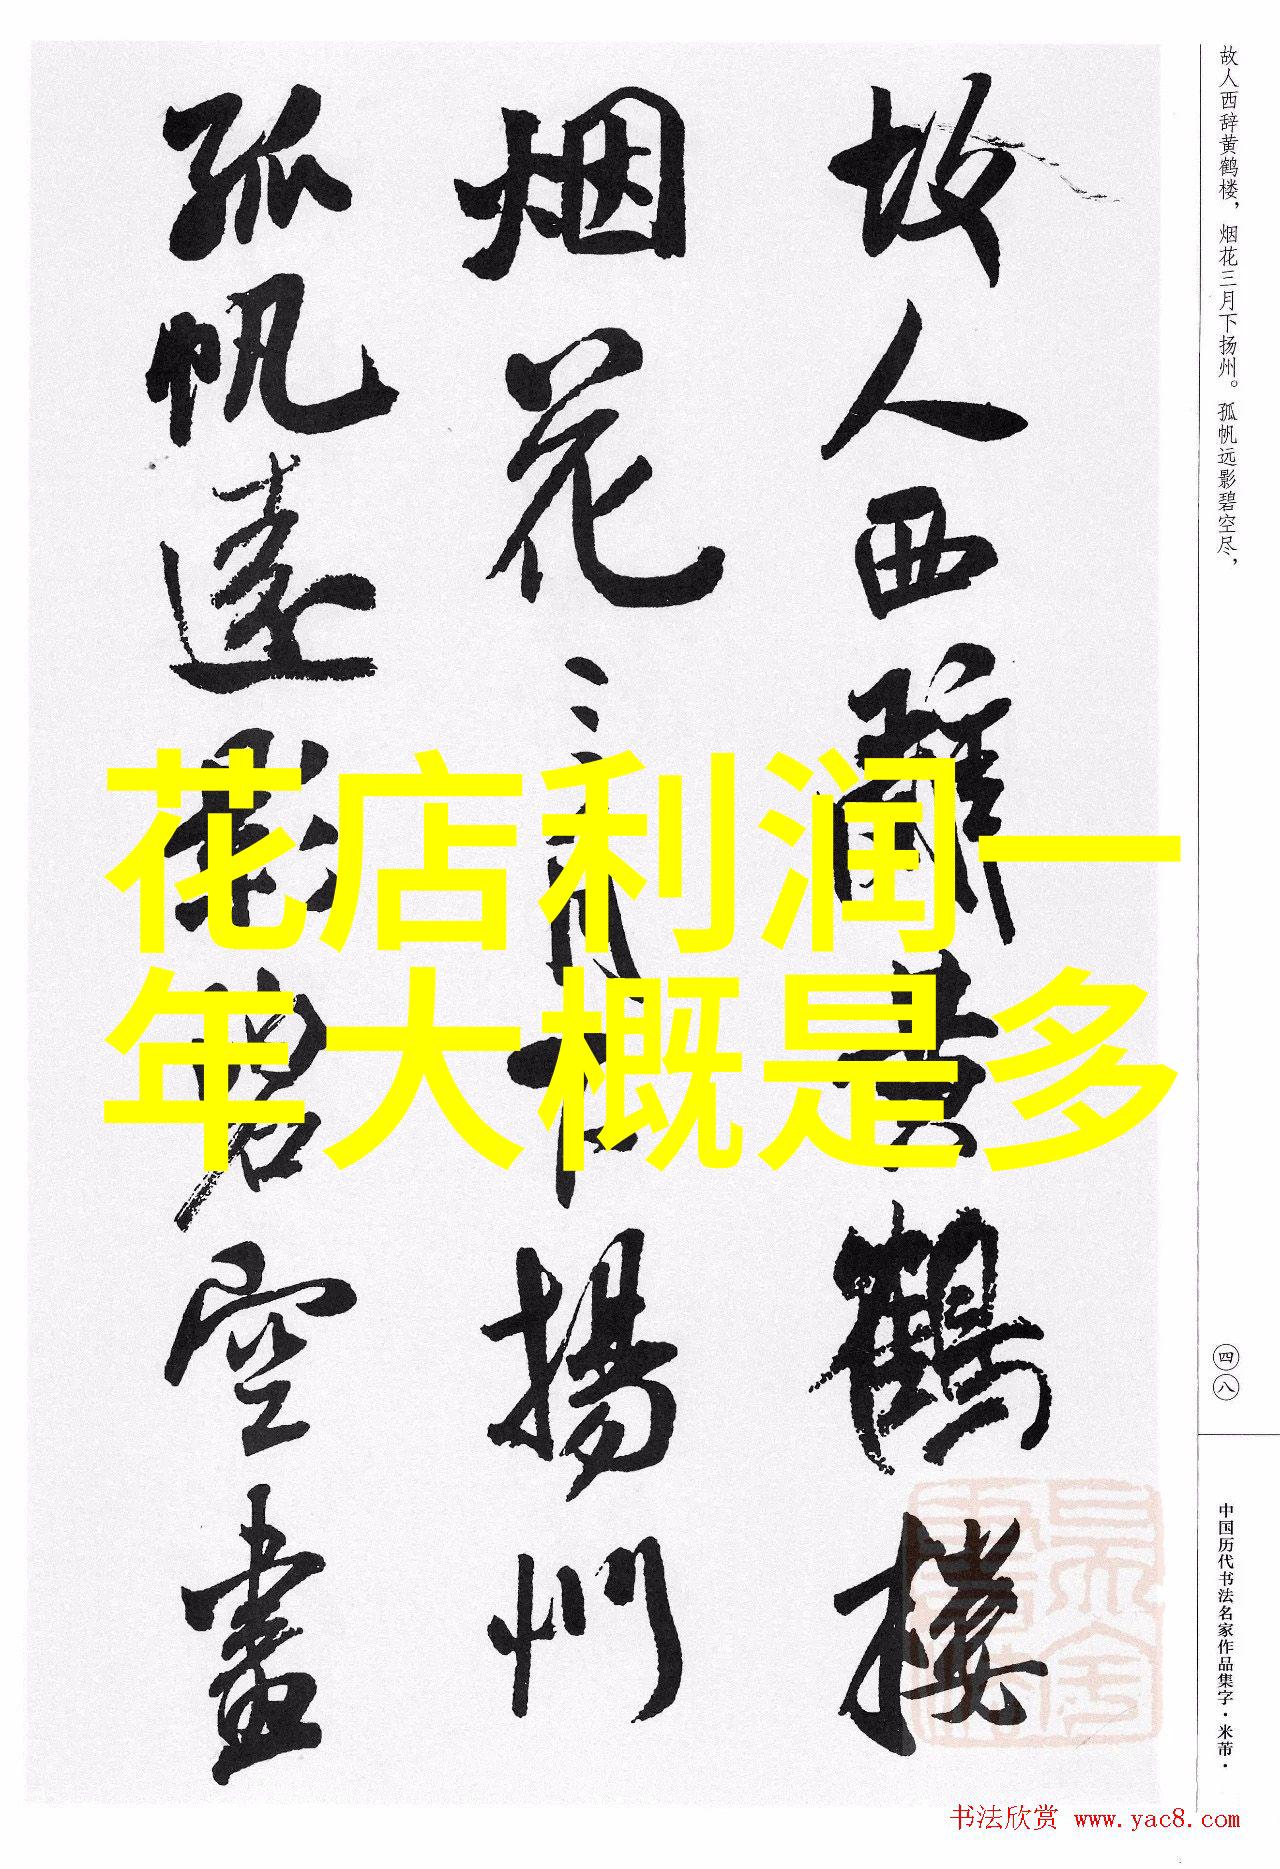 故人西辞黄鹤楼，烟花三月下扬州。孤帆远影碧空尽，
故人西辭黄鶴楼
烟花三月下揚州
孤帆遠影碧空盡
花店利润一
年大概是多
四八
中国历代书法名家作品集字·米芾·
书法欣赏 www.yac8.com